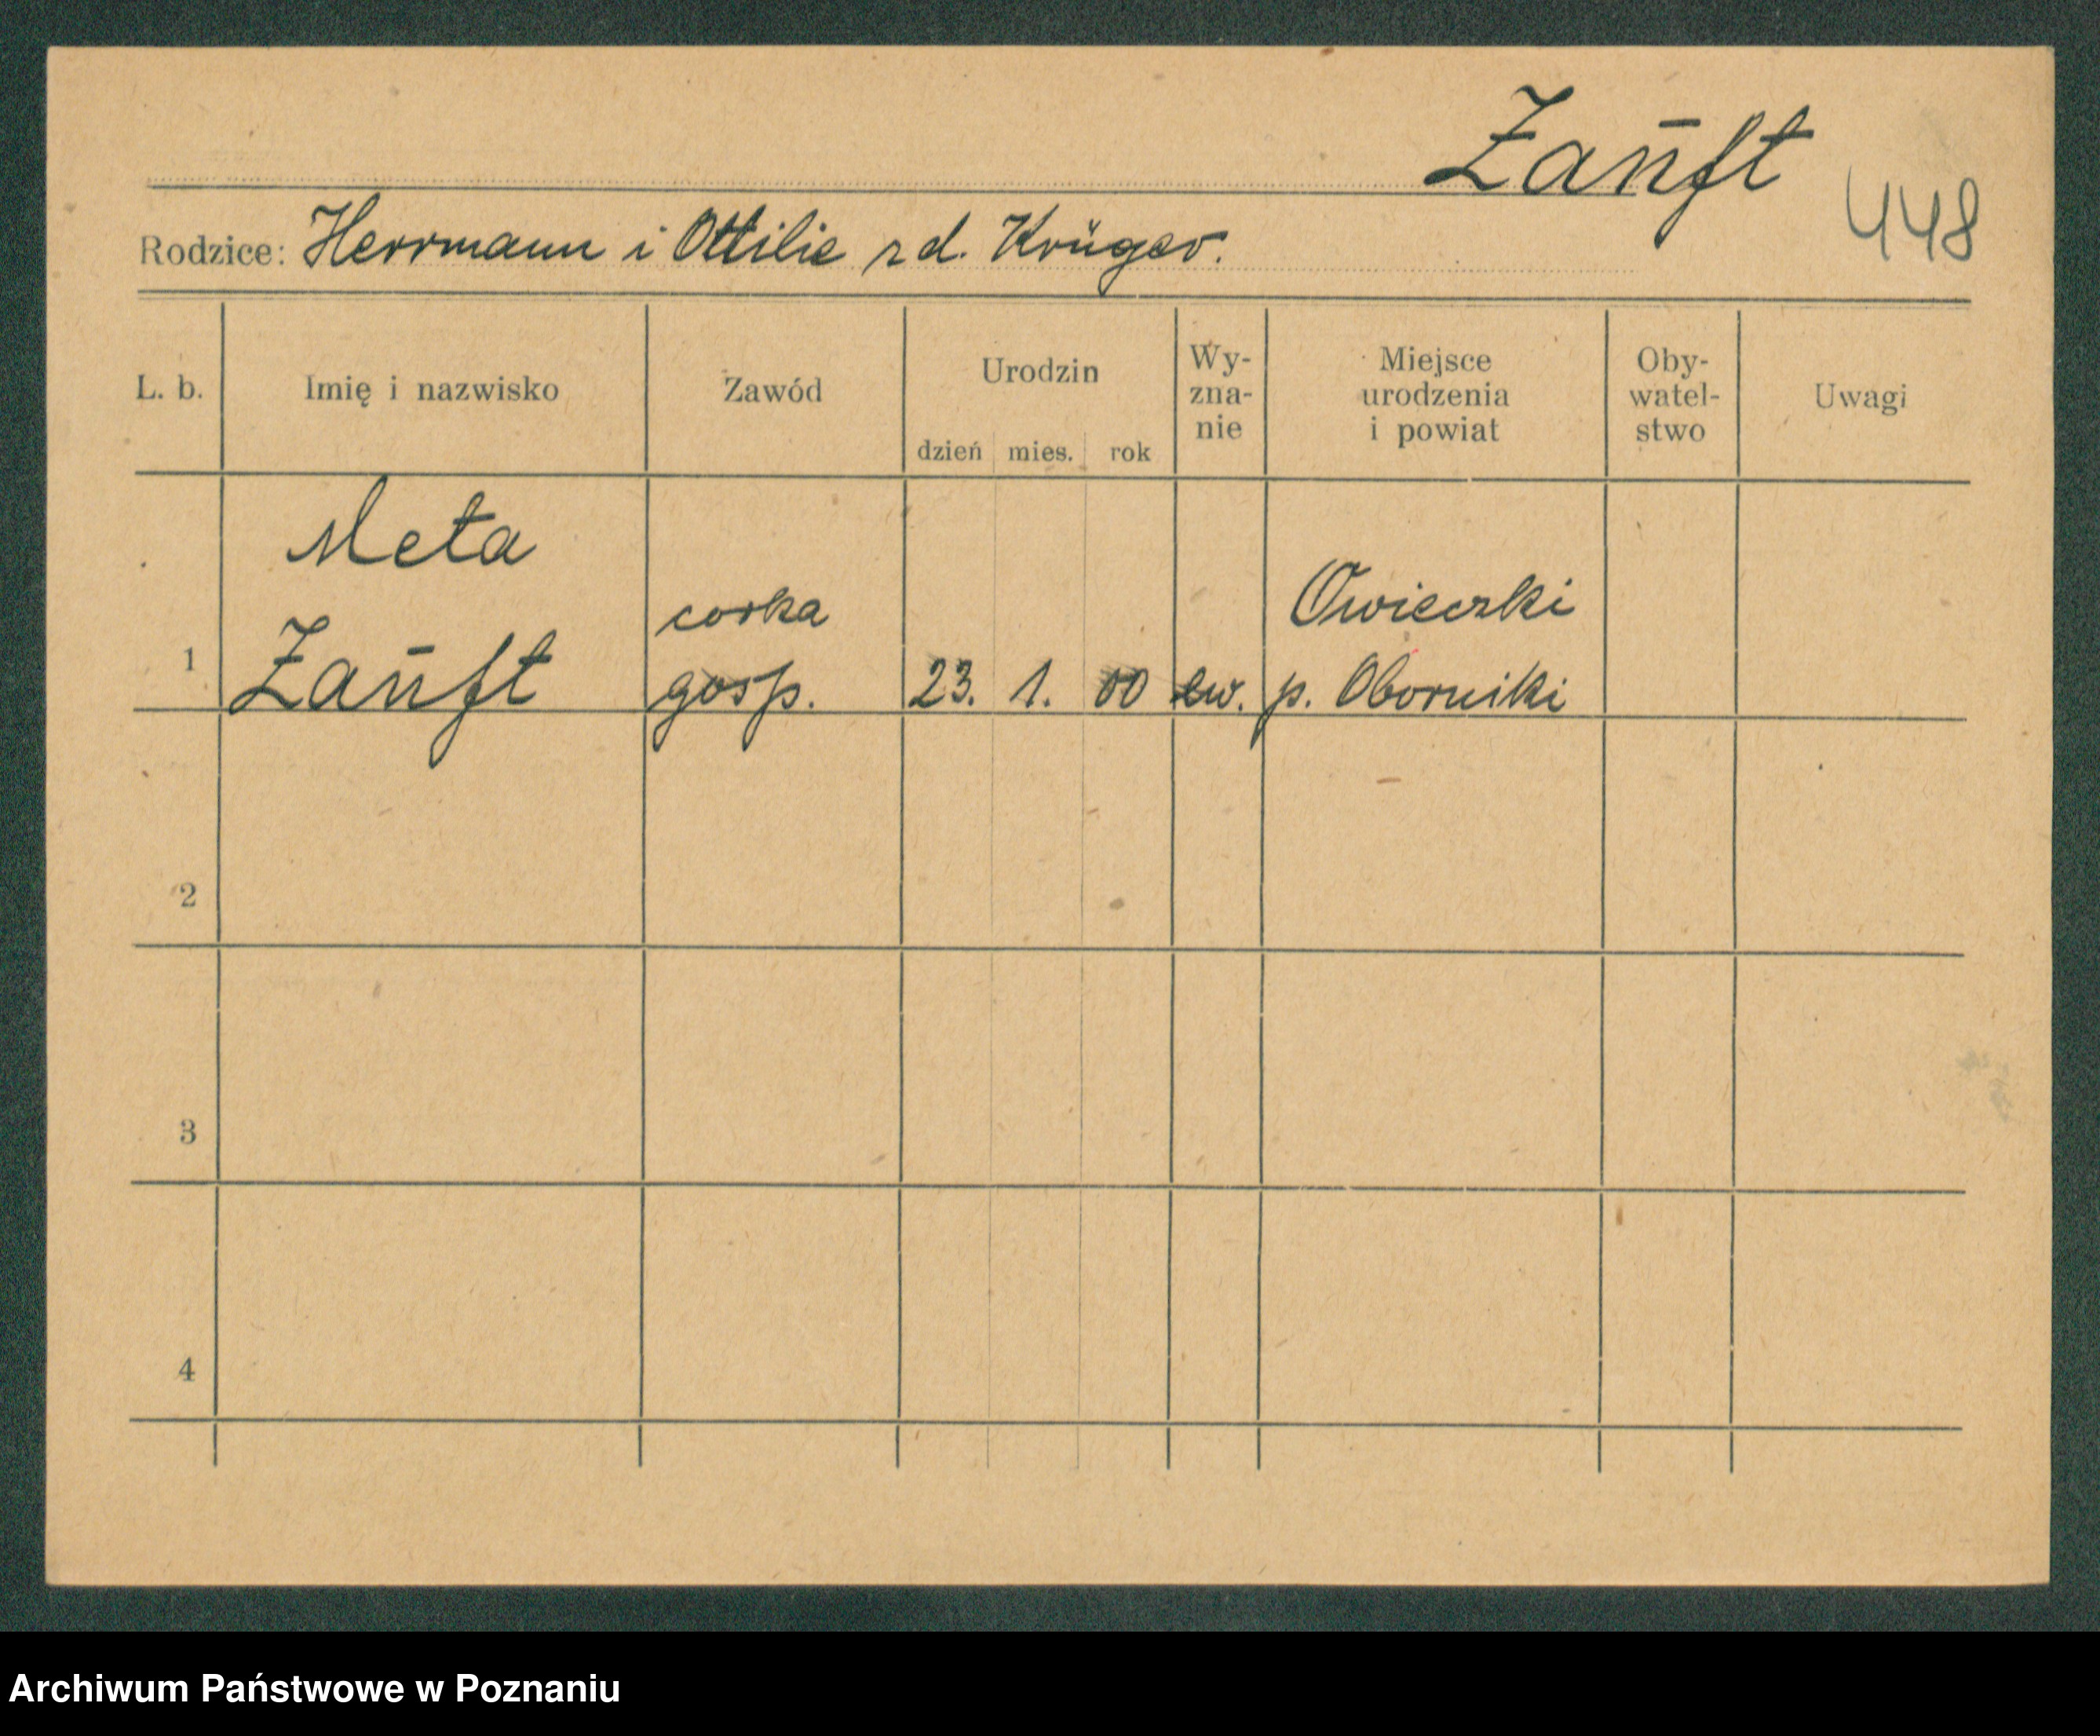 Zaūft
448
Rodzice: Herrmann i Ottilie rd. Krüger.
L. b. Imię i nazwisko Zawód Urodzin dzień mies. rok Wy-zna-nie Miejsce urodzenia i powiat Oby-watel-stwo Uwagi
Meta
corka Owieczki
1 Zaūft gosp. 23. 1. 00 ew. p. Oborniki
2
3
4
Archiwum Państwowe w Poznaniu